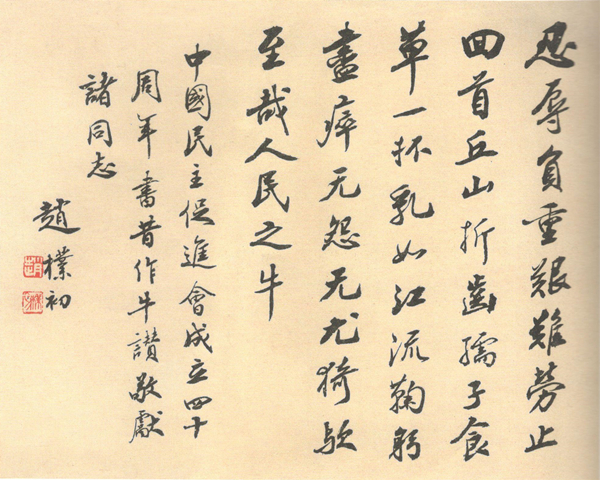 忍辱負重艱難勞止
回首丘山折齒孺子食
草一杯乳如江流鞠躬
盡瘁无怨无尤猗歟
至哉人民之牛
中國民主促進會成立四十
周年書昔作牛讚敬獻
諸同志
趙樸初